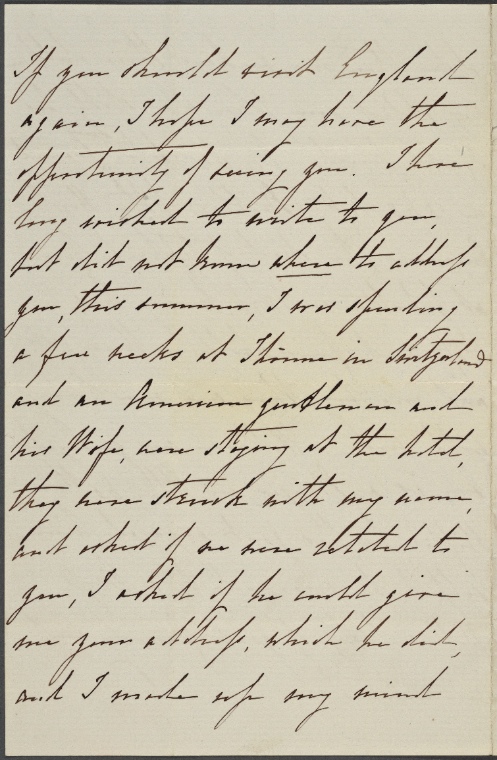 If you should visit England
again, I hope I may have the
opportunity of seeing you. I have
long wished to write to you,
but did not know where to address
you, this summer, I was spending
a few weeks at Thoune in Switzerland
and an American gentleman and
his Wife, were staying at the hotel,
they were struck with my name,
and asked if we were related to
you, I asked if he could give
me your address, which he did,
and I made up my mind